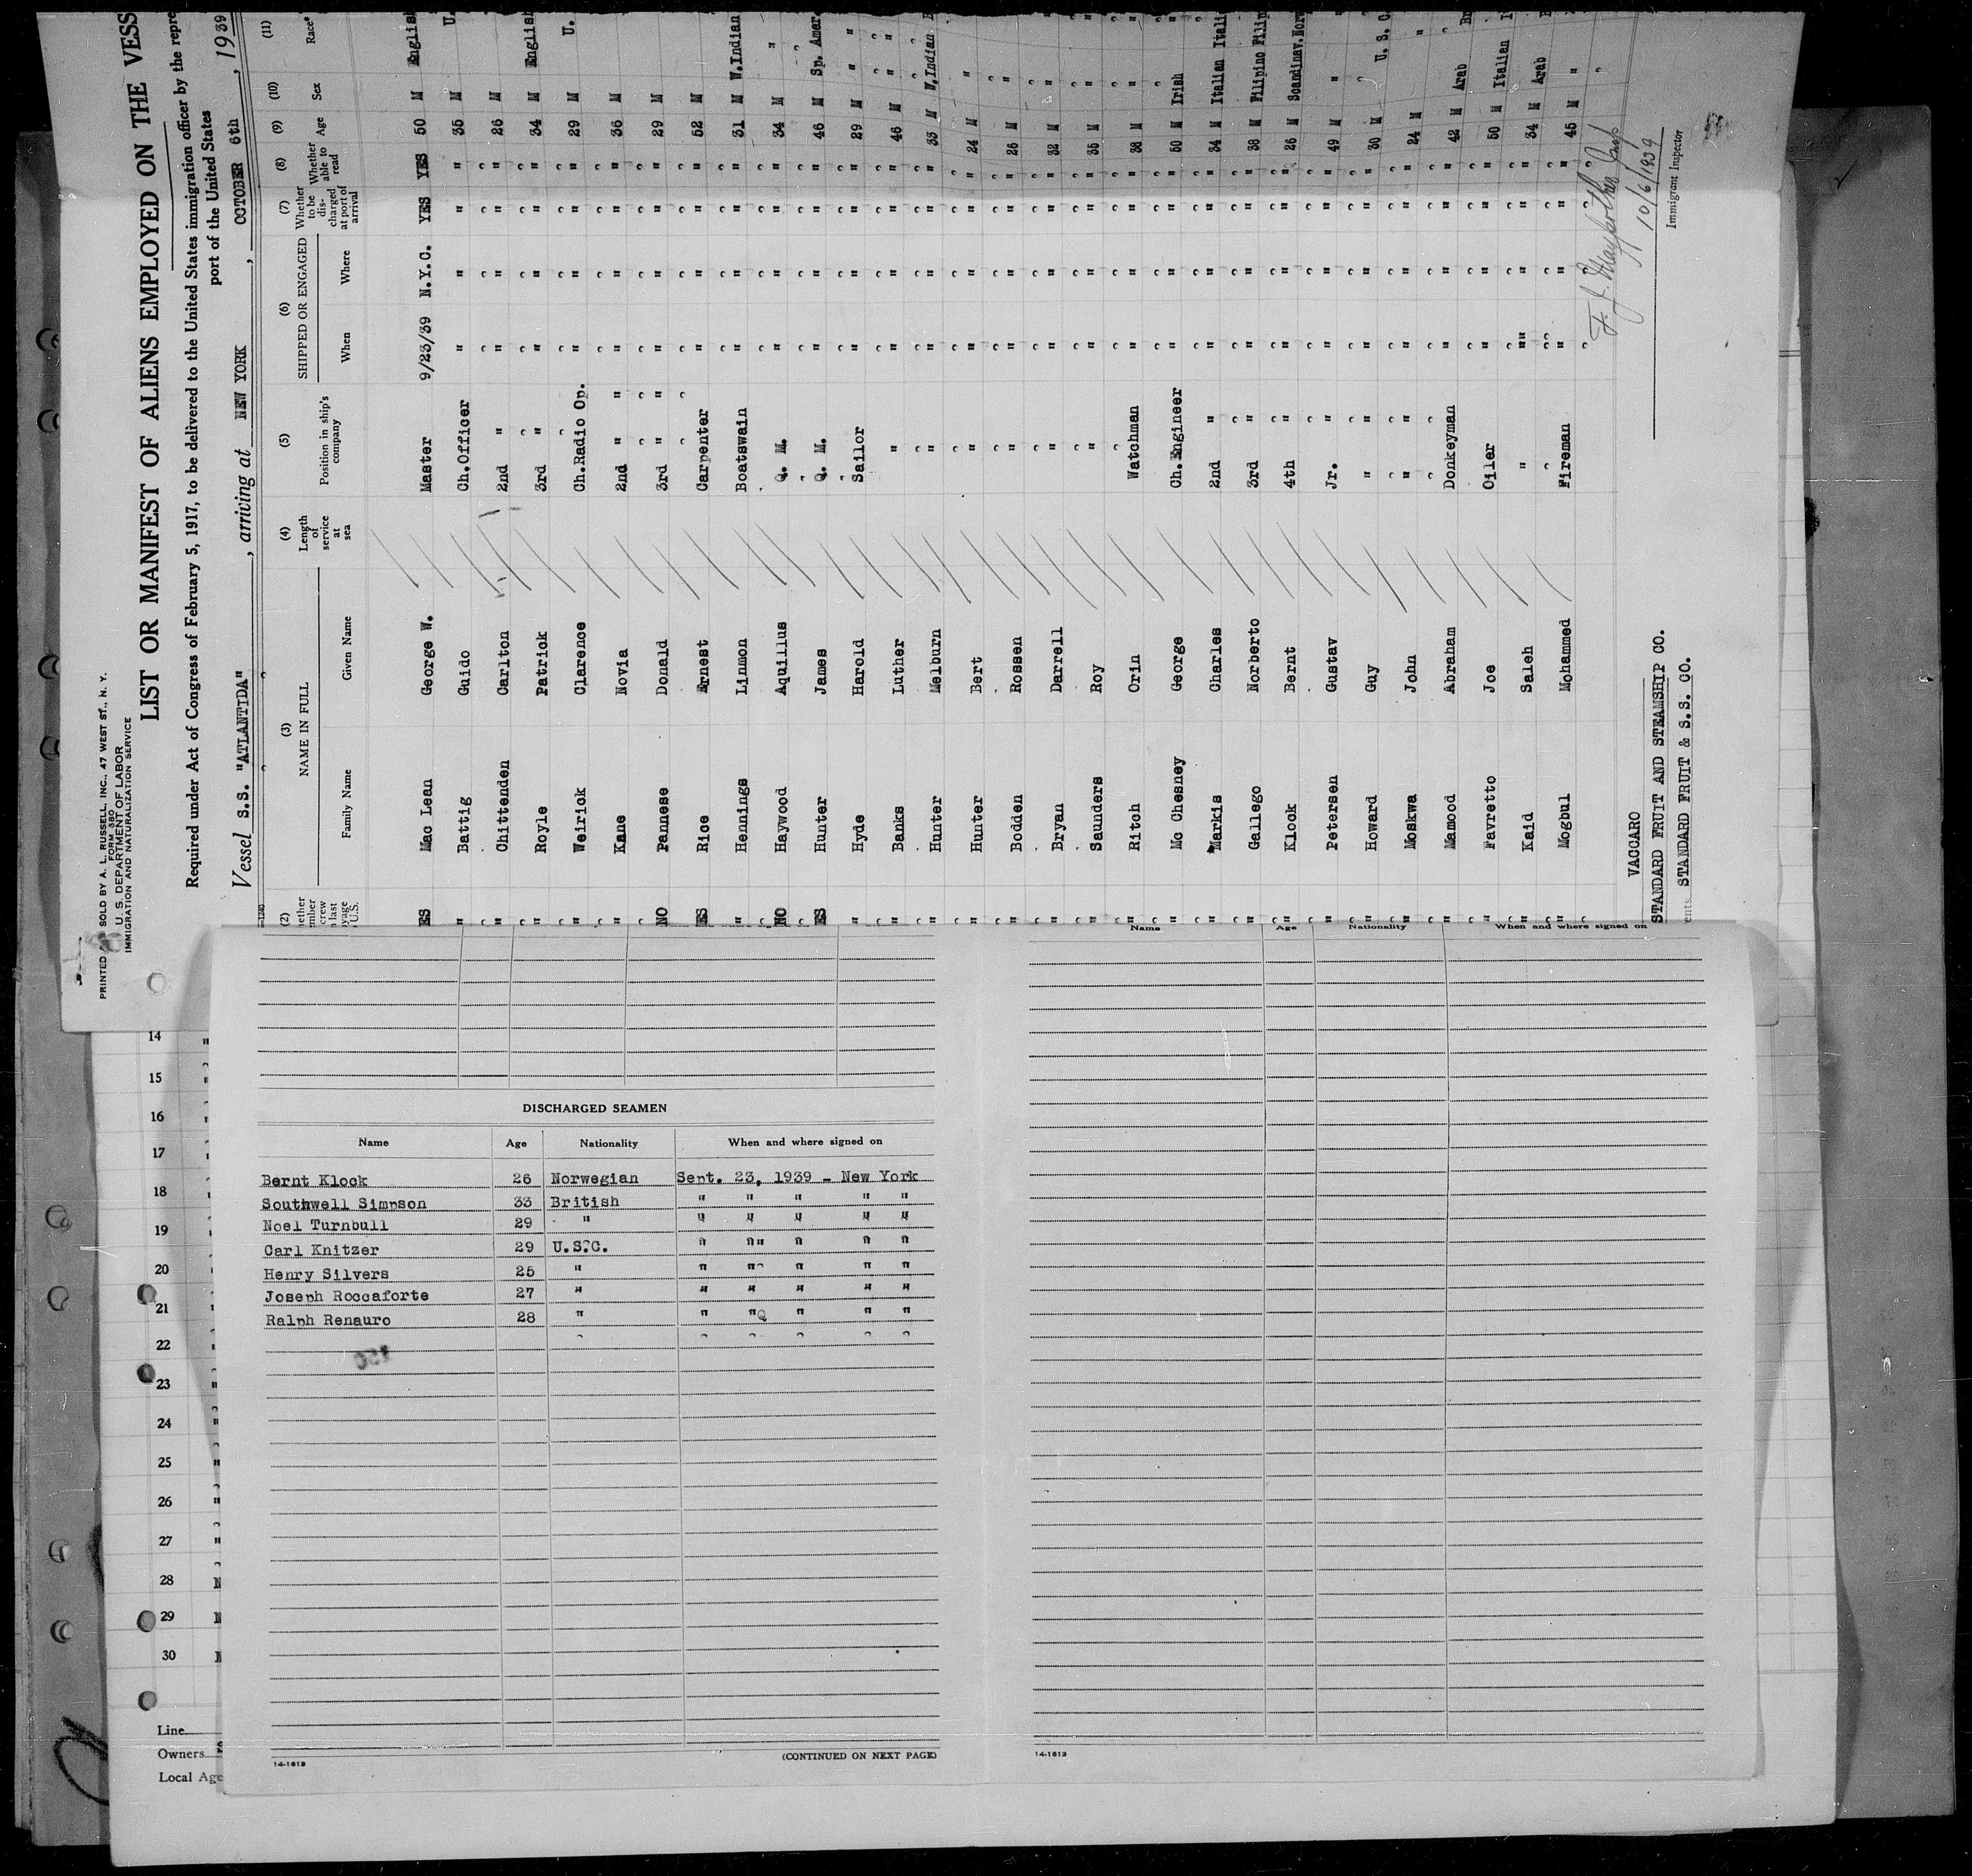 PRINTED SOLD BY A. L. RUSSELL, INC., 47 WEST ST., N. Y.
FORM 680
U. S. DEPARTMENT OF LABOR
IMMIGRATION AND NATURALIZATION SERVICE
LIST OR MANIFEST OF ALIENS EMPLOYED ON THE VESS
Required under Act of Congress of February 5, 1917, to be delivered to the United States immigration officer by the repre
port of the United States
Vessel S.S. "ATLANTIDA", arriving at NEW YORK, OCTOBER 6th, 1939
(2) (3) (4) (5) (6) (7) (8) (9) (10) (11)
NAME IN FULL Length of service at sea Position in ship's company SHIPPED OR ENGAGED Whether to be discharged at port of arrival Whether able to read Age Sex Race*
Family Name Given Name When Where
ES Mac Lean George W. Master 9/23/39 N.Y.C. YES YES 50 M English
" Battig Guido Ch.Officer " " " " 35 M U.
" Chittenden Carlton 2nd " " " " " 26 M
" Royle Patrick 3rd " " " " " 34 M English
" Weirick Clarence Ch.Radio Op. " " " " 29 M U.
" Kane Novia 2nd " " " " " " 36 M
NO Pannese Donald 3rd " " " " " " 29 M
ES Rice Ernest Carpenter " " " " 52 M
" Hennings Linmon Boatswain " " " " 31 M W.Indian
NO Haywood Aquillus Q. M. " " " " 34 M "
ES Hunter James Q. M. " " " " 46 M Sp. Amer.
" Hyde Harold Sailor " " " " 29 M "
" Banks Luther " " " " " 46 M "
" Hunter Melburn " " " " " 33 M W.Indian B
" Hunter Bert " " " " " 24 M "
" Bodden Rossen " " " " " 26 M "
" Bryan Darrell " " " " " 32 M "
" Saunders Roy " " " " " 35 M "
" Ritch Orin Watchman " " " " 38 M "
" Mc Chesney George Ch.Engineer " " " " 50 M Irish
" Markis Charles 2nd " " " " " 34 M Italian Itali
" Gallego Norberto 3rd " " " " " 38 M Filipino Filip
" Klock Bernt 4th " " " " " 26 M Scandinav.Norw
" Petersen Gustav Jr. " " " " " 49 M "
" Howard Guy " " " " " " 30 M U. S. C.
" Moskwa John " " " " " " 24 M "
" Mamood Abraham Donkeyman " " " " 42 M Arab Br
" Favretto Joe Oiler " " " " 50 M Italian I
" Kaid Saleh " " " " " 34 M Arab B
" Mogbul Mohammed Fireman " " " " 45 M "
F. J. 10/6/1939
Immigrant Inspector
VACCARO
STANDARD FRUIT AND STEAMSHIP CO.
ents STANDARD FRUIT & S.S. CO.
Name Age Nationality When and where signed on
DISCHARGED SEAMEN
Name Age Nationality When and where signed on
Bernt Klock 26 Norwegian Sept. 23, 1939 - New York
Southwell Simpson 33 British " " " " "
Noel Turnbull 29 " " " " " "
Carl Knitzer 29 U.S.C. " " " " "
Henry Silvers 25 " " " " " "
Joseph Roccaforte 27 " " " " " "
Ralph Renauro 28 " " " " " "
14-1613 (CONTINUED ON NEXT PAGE)
14-1613
14 "
15 "
16 "
17 "
18 "
19 "
20 "
21 "
22 "
23 "
24 "
25 "
26 "
27 "
28 N
29 N
30 N
Line
Owners
Local Age